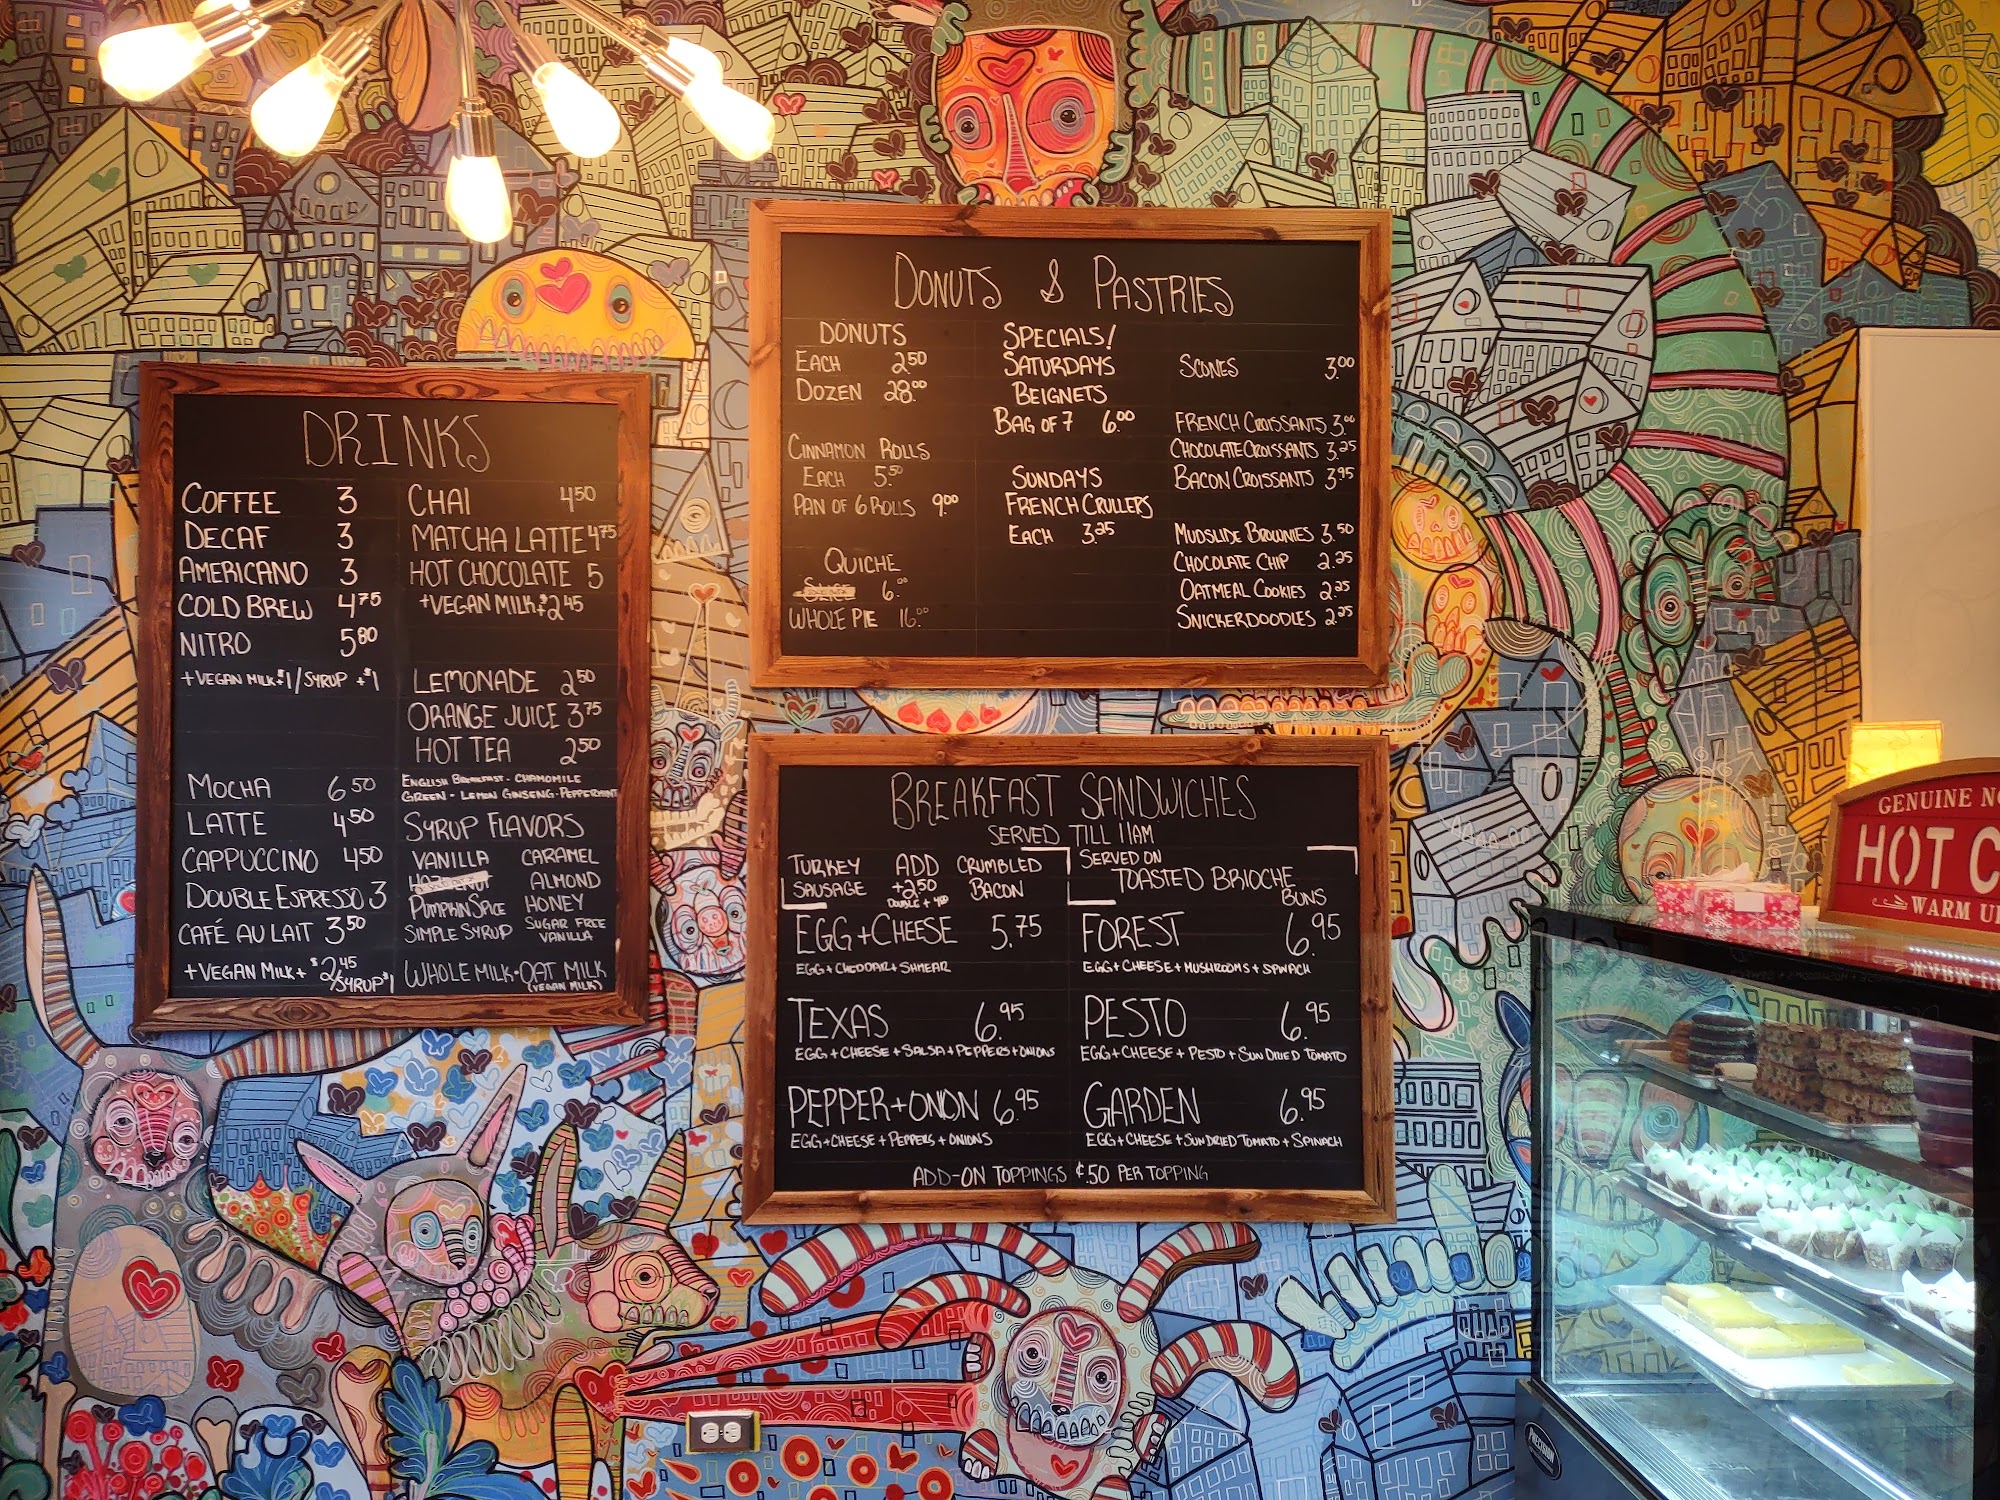 DRINKS
COFFEE 3
DECAF 3
AMERICANO 3
COLD BREW 4.75
NITRO 5.80
+VEGAN MILK+$1/SYRUP +$1
MOCHA 6.50
LATTE 4.50
CAPPUCCINO 4.50
DOUBLE ESPRESSO 3
CAFÉ AU LAIT 3.50
+VEGAN MILK+ $2.45/SYRUP $1
CHAI 4.50
MATCHA LATTE 4.75
HOT CHOCOLATE 5
+VEGAN MILK+$2.45
LEMONADE 2.50
ORANGE JUICE 3.75
HOT TEA 2.50
ENGLISH BREAKFAST - CHAMOMILE
GREEN - LEMON GINSENG - PEPPERMINT
SYRUP FLAVORS
VANILLA CARAMEL
ALMOND
PUMPKIN SPICE HONEY
SIMPLE SYRUP SUGAR FREE
VANILLA
WHOLE MILK · OAT MILK
(VEGAN MILK)
DONUTS & PASTRIES
DONUTS
EACH 2.50
DOZEN 28.00
CINNAMON ROLLS
EACH 5.50
PAN OF 6 ROLLS 9.00
QUICHE
6.00
WHOLE PIE 16.00
SPECIALS!
SATURDAYS
BEIGNETS
BAG OF 7 6.00
SUNDAYS
FRENCH CRULLERS
EACH 3.25
SCONES 3.00
FRENCH CROISSANTS 3.00
CHOCOLATE CROISSANTS 3.25
BACON CROISSANTS 3.95
MUDSLIDE BROWNIES 3.50
CHOCOLATE CHIP 2.25
OATMEAL COOKIES 2.25
SNICKERDOODLES 2.25
BREAKFAST SANDWICHES
SERVED TILL 11AM
TURKEY ADD CRUMBLED
SAUSAGE +2.50 BACON
DOUBLE +4.00
SERVED ON
TOASTED BRIOCHE
BUNS
EGG+CHEESE 5.75
EGG+CHEDDAR+SHMEAR
TEXAS 6.95
EGG+CHEESE+SALSA+PEPPERS+ONIONS
PEPPER+ONION 6.95
EGG+CHEESE+PEPPERS+ONIONS
FOREST 6.95
EGG+CHEESE+MUSHROOMS+SPINACH
PESTO 6.95
EGG+CHEESE+PESTO+SUN DRIED TOMATO
GARDEN 6.95
EGG+CHEESE+SUN DRIED TOMATO+SPINACH
ADD-ON TOPPINGS $.50 PER TOPPING
GENUINE
HOT C
WARM